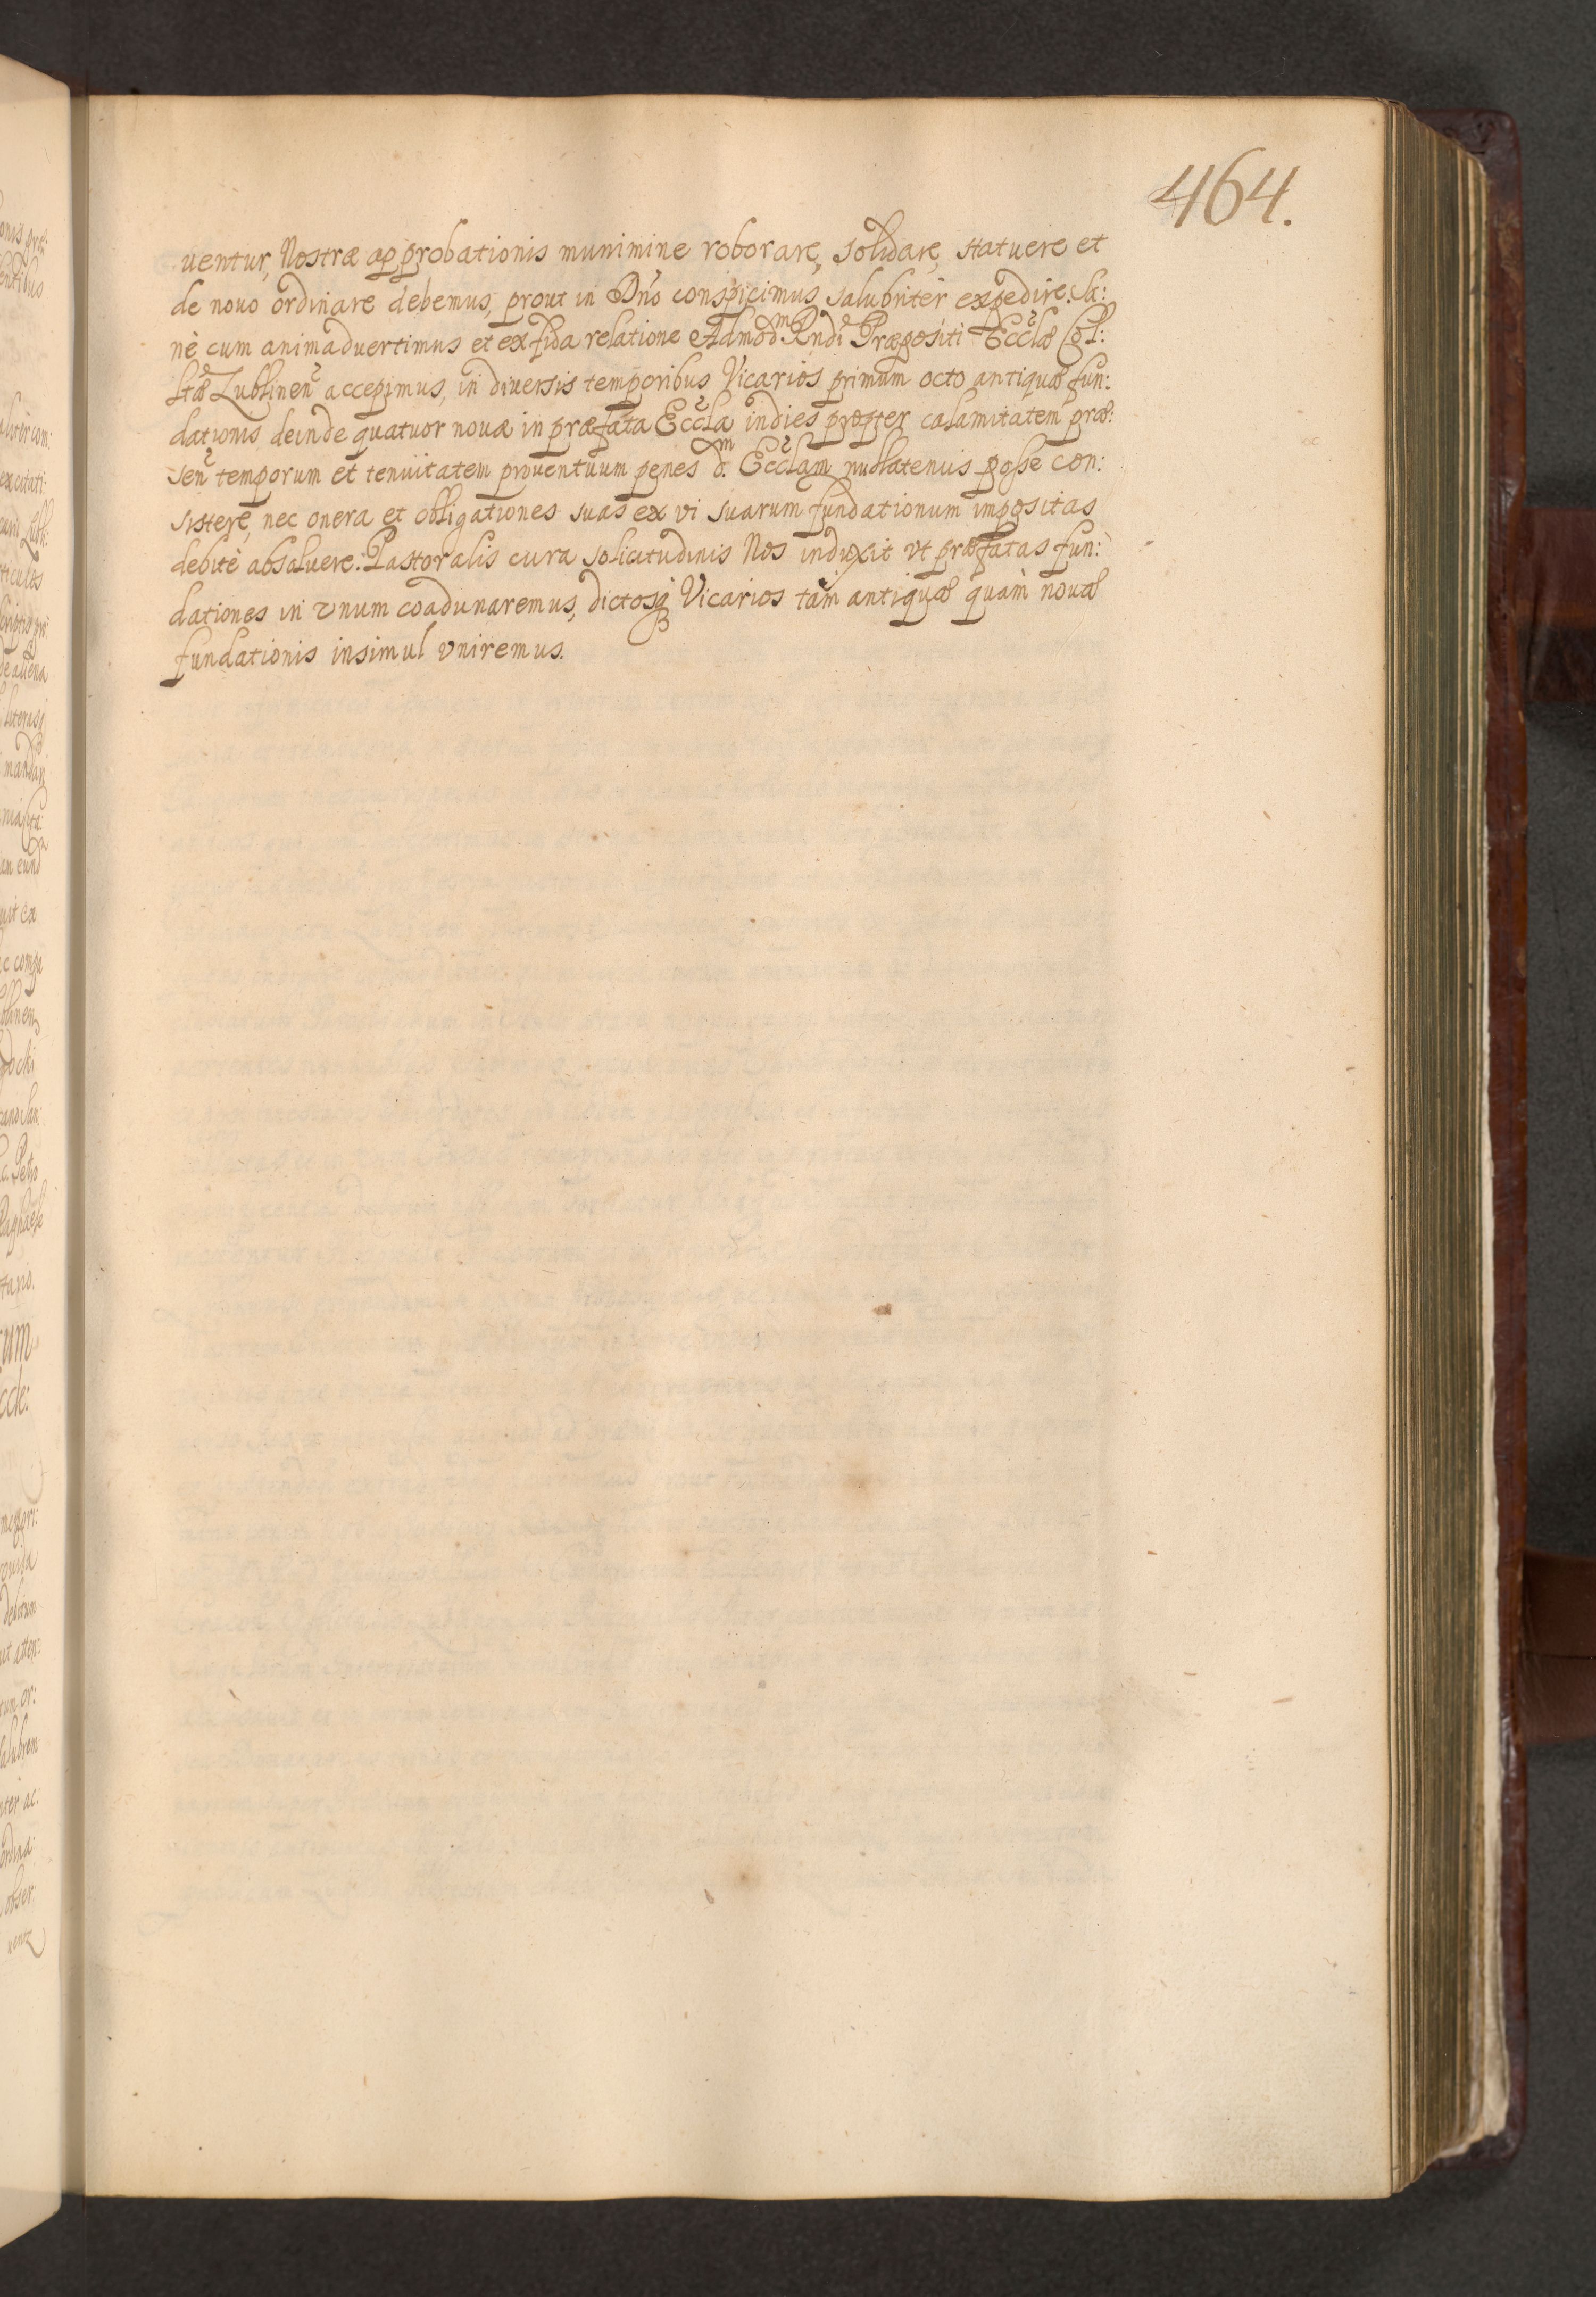 464.
uentur, Nostræ approbationis munimine roborare, solidare, statuere et
de nouo ordinare debemus, prout in Dno conspicimus salubriter expedire. Sa:
nè cum animaduertimus et ex fida relatione Admod.m Rndi Præpositi Ecclæ Col:
ltæ Lublinen accepimus, in diuersis temporibus Vicarios primum octo antiquæ fun:
dationis deinde quatuor nouæ in præfata Eccla indies propter calamitatem præ:
sen temporum et tenuitatem prouentuum penes d.m Ecclam nullatenus posse con:
sistere, nec onera et obligationes suas ex vi suarum fundationum impositas
debitè absoluere: Pastoralis cura solicitudinis Nos induxit vt præfatas fun:
dationes in vnum coadunaremus, dictosq Vicarios tàm antiquæ quàm nouæ
fundationis insimul vniremus.